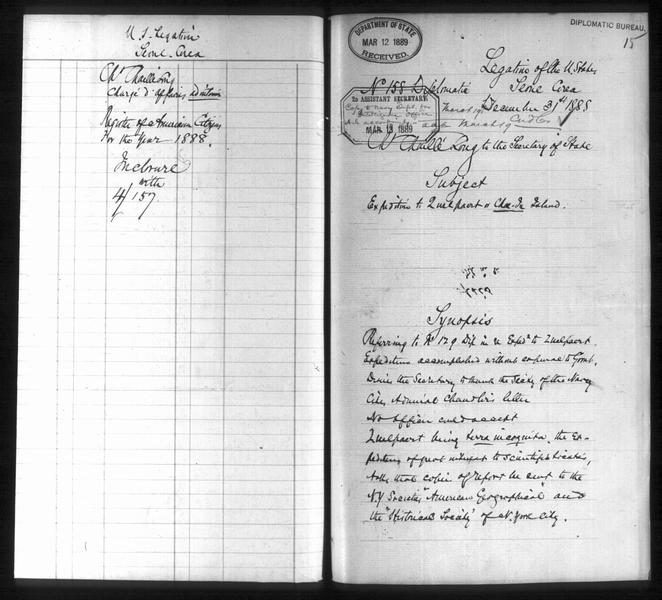 U S Legation
Seoul Corea
Ch Chaillé Long
Chargé d'affaires ad interim
Register of American Citizens
For the Year 1888.
Inclosure
with
4/157
DIPLOMATIC BUREAU.
15
DEPARTMENT OF STATE
MAR 12 1889
RECEIVED.
Legation of the U. States
Seoul Corea
No 158 Diplomatic
December 31st 1888
2D ASSISTANT SECRETARY
Copy to Navy Dept. for
MAR 13 1889
Ch Chaillé Long to the Secretary of State
Subject
Expedition to Quelpaert or Chae-Ju Island.
Synopsis
Referring to No 129 Dip in re Expdn to Quelpaert.
Expedition accomplished without expense to Govmt.
Desires the Secretary to thank the Secty of the Navy
Cites Admiral Chandler's letter
No officer could accept
Quelpaert being terra incognita, the Ex-
pedition of great interest to scientific bodies,
Asks that copies of report be sent to the
N.Y. Societies "American Geographical" and
the "Historical Society" of N. York City.